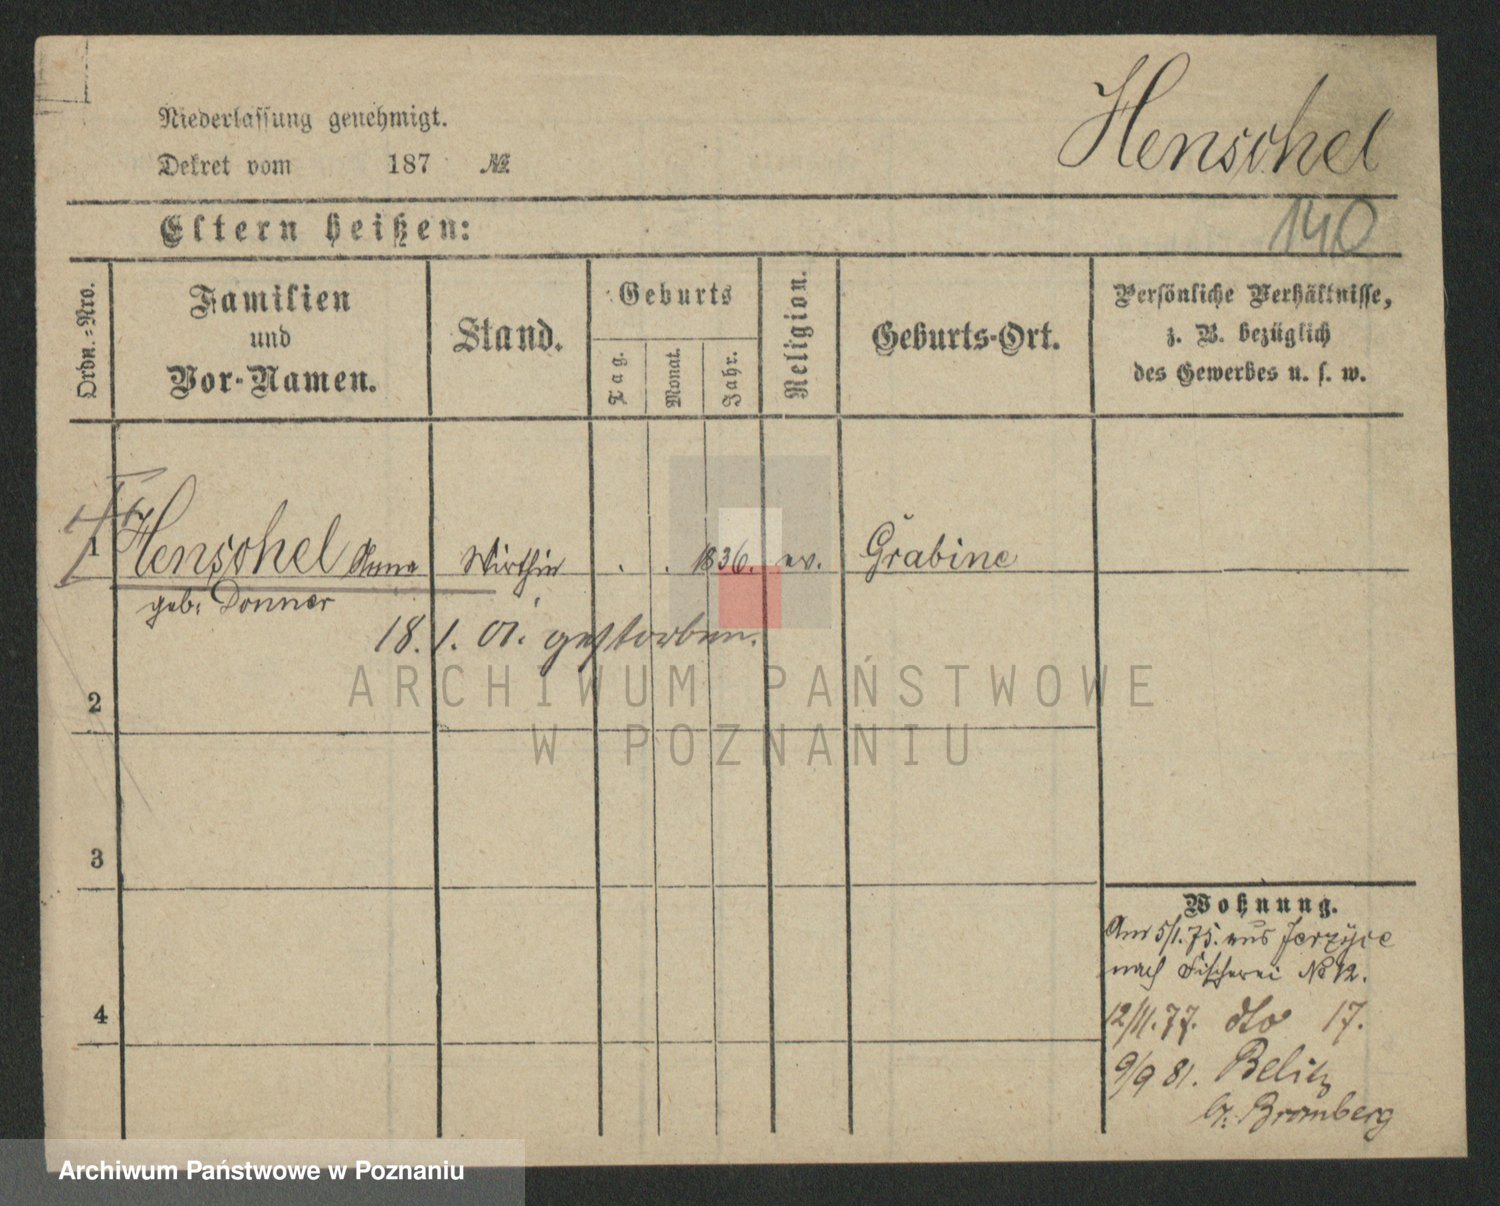 Niederlassung genehmigt.
Dekret vom 187 №
Henschel
140
Eltern heißen:
Ordn.-Nro.
Familien
und
Vor-Namen.
Stand.
Geburts
Tag.
Monat.
Jahr.
Religion.
Geburts-Ort.
Persönliche Verhältnisse,
z. B. bezüglich
des Gewerbes u. s. w.
1 Henschel Anna Wirthin . . 1836. ev. Grabine
geb. Donner
18. 1. 01. gestorben.
ARCHIWUM PAŃSTWOWE
W POZNANIU
2
3
4
Wohnung.
Am 5/1. 75. aus Jerzyce
nach Fischerei No 12.
12/11. 77. dto 17.
9/9 81. Belitz
b. Bromberg
Archiwum Państwowe w Poznaniu